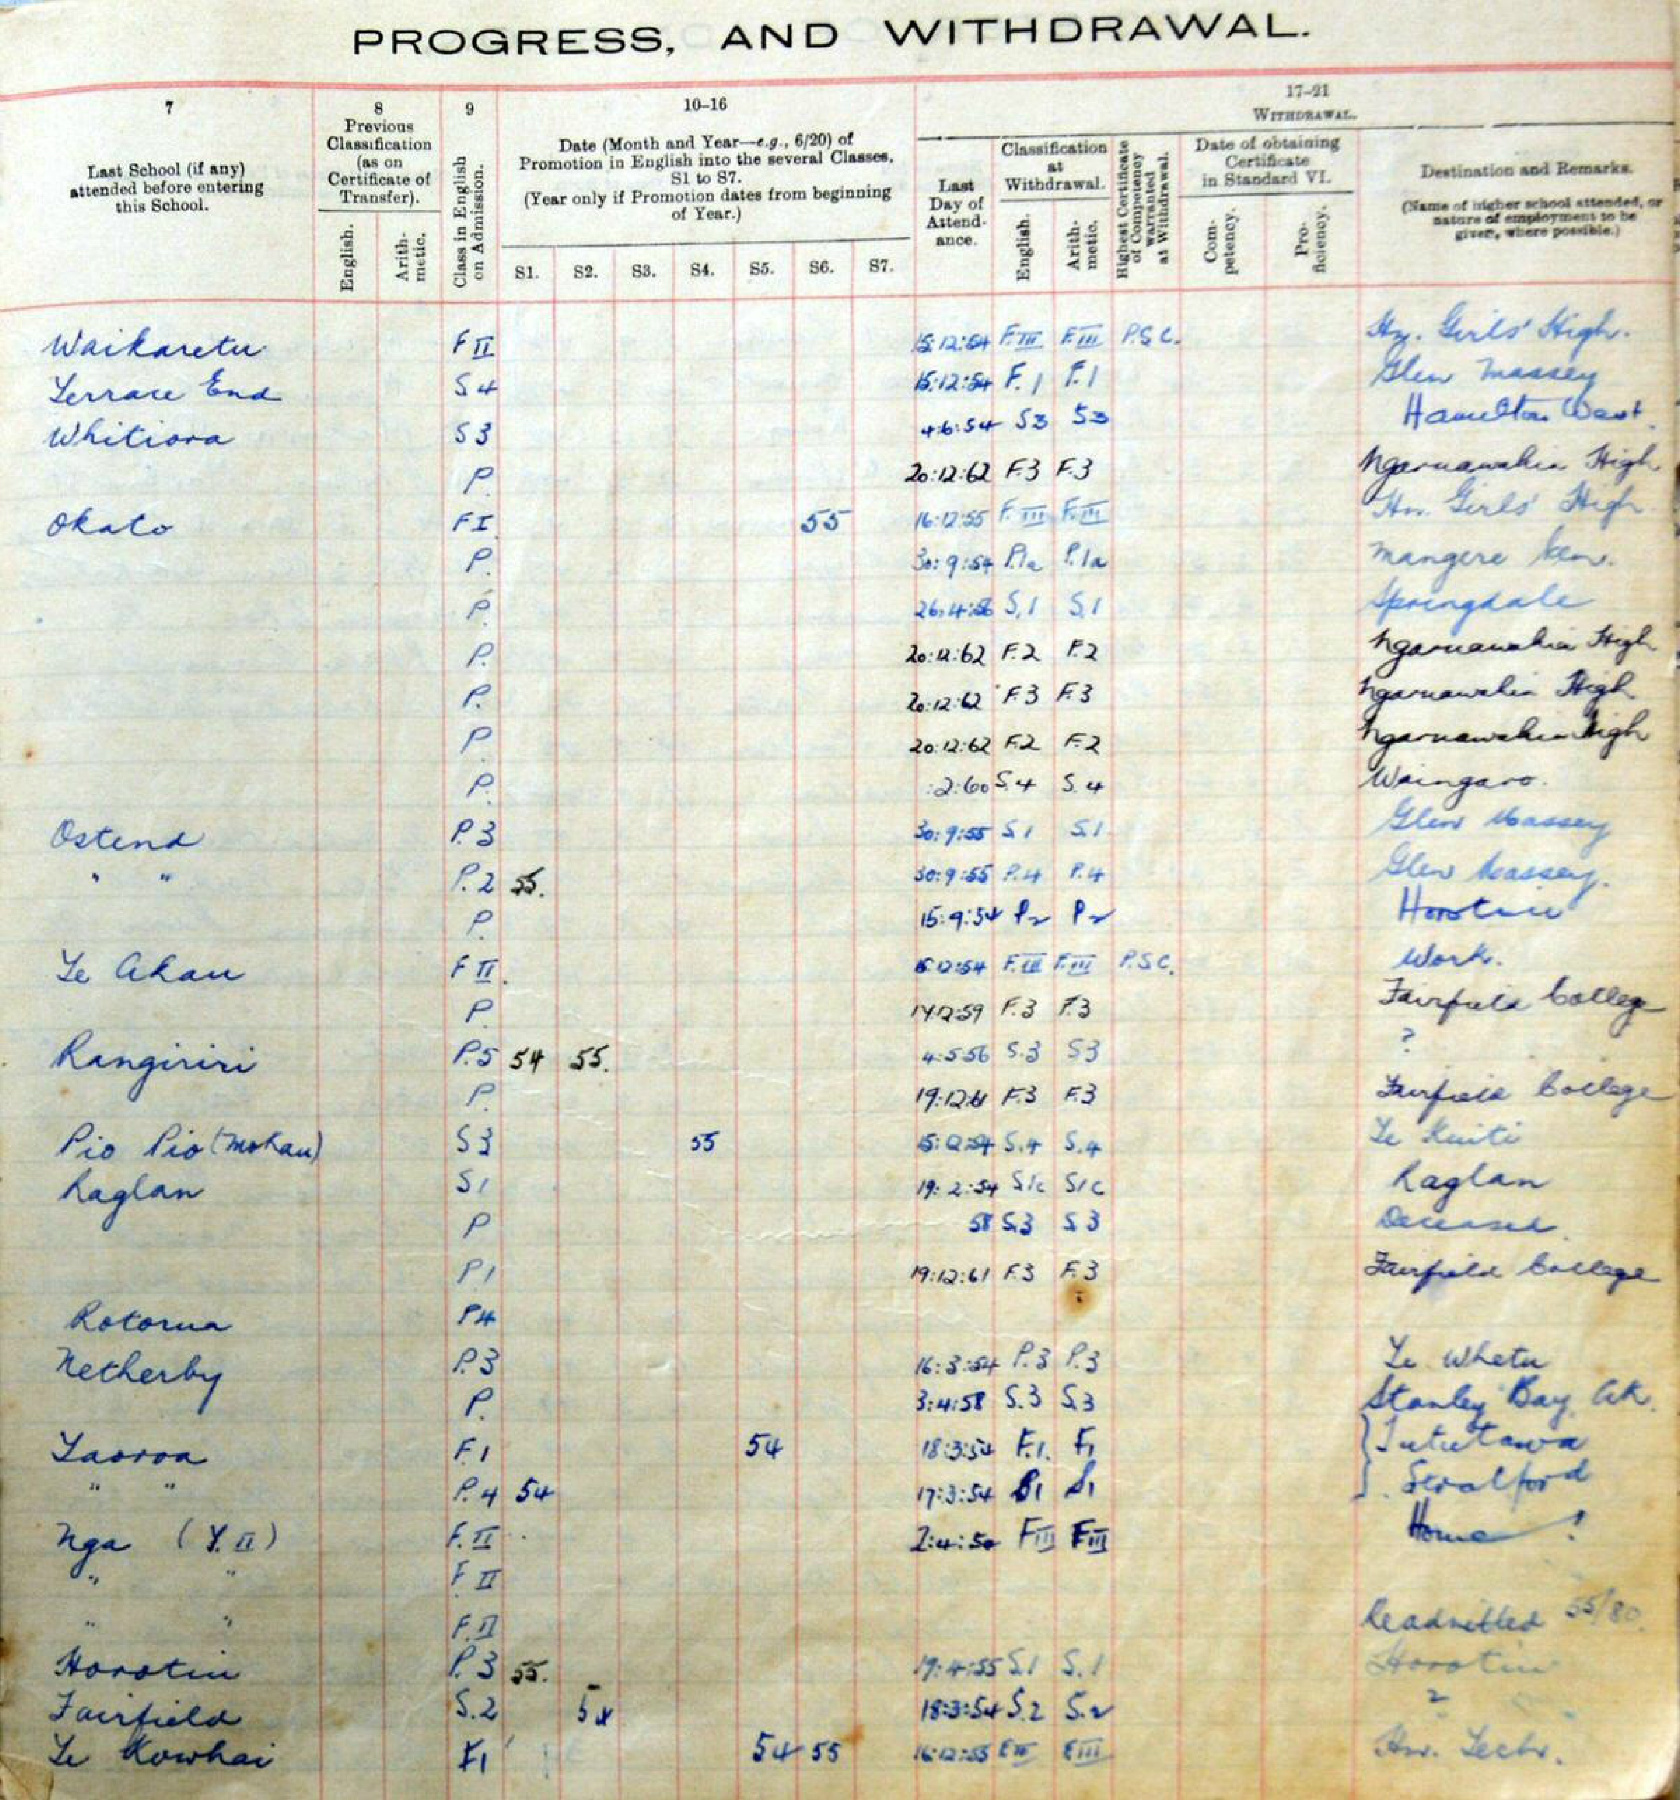 PROGRESS, AND WITHDRAWAL.
7 8 9 10–16 17–21
WITHDRAWAL.
Last School (if any) attended before entering this School.
Previous Classification (as on Certificate of Transfer).
English. Arithmetic.
Class in English on Admission.
Date (Month and Year—e.g., 6/20) of Promotion in English into the several Classes, S1 to S7.
(Year only if Promotion dates from beginning of Year.)
S1. S2. S3. S4. S5. S6. S7.
Last Day of Attendance.
Classification at Withdrawal.
English. Arithmetic.
Highest Certificate of Competency warranted at Withdrawal.
Date of obtaining Certificate in Standard VI.
Competency. Proficiency.
Destination and Remarks.
(Name of higher school attended, or nature of employment to be given, where possible.)
Waikaretu F II 15:12:54 F.III F.III P.S.C. Girls' High.
Terrace End S4 15:12:54 F.1 F.1 Glen Massey
Whitiora S3 4:6:54 S3 S3 Hamilton West.
P. 20:12:62 F.3 F.3 Ngaruawahia High
Okato F I 55 16:12:55 F.III F.III Hn. Girls' High
P. 30:9:54 P.1a P.1a Mangere
P. 26:4:56 S.1 S.1 Springdale
P. 20:12:62 F.2 F.2 Ngaruawahia High
P. 20:12:62 F.3 F.3 Ngaruawahia High
P. 20:12:62 F.2 F.2 Ngaruawahia High
P. :2:60 S.4 S.4 Waingaro.
Ostend P.3 30:9:55 S.1 S.1 Glen Massey
" " P.2 55. 30:9:55 P.4 P.4 Glen Massey.
P. 15:9:54 P2 P2 Horotiu
Te Akau F II. 15:12:54 F.III F.III P.S.C. Work.
P. F.3 F.3 Fairfield College
Rangiriri P.5 54 55. 4:5:56 S.3 S3 ?
P. 19:12:61 F.3 F.3 Fairfield College
Pio Pio (Mokau) S3 55 S.4 S.4 Te Kuiti
Raglan S1 19:2:54 S1c S1c Raglan
P 58 S.3 S.3 Deceased.
P1 19:12:61 F.3 F.3 Fairfield College
Rotorua P4
Netherby P.3 16:3:54 P.3 P.3 Te Whetu
P. 3:4:58 S.3 S.3 Stanley Bay, Ak.
Taoroa F.1 54 18:3:54 F.1. F1 } Tututawa
" " P.4 54 17:3:54 S1 S1 } Stratford
Nga (F.II) F.II F III F III Home !
" " F II
" " F.II Readmitted 55/80.
Horotiu P.3 55. 19:4:55 S.1 S.1 Horotiu
Fairfield S.2 54 18:3:54 S.2 S.2 ?
Te Kowhai F1 54 55 16:12:55 F III F III Hn. Tech.